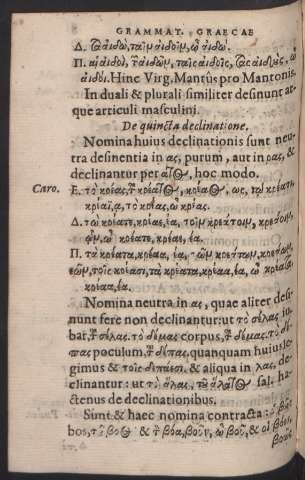 GRAMMAT. GRAECAE
Δ. αἰδοῖν, ὦ αἰδώ.
Π. αἱ αἰδοὶ, αἰδῶν, ταῖς αἰδοῖς, τὰς αἰδοὺς, ὦ
αἰδοί. Hinc Virg. Mantûs pro Mantonis.
In duali & plurali similiter desinunt at-
que articuli masculini.
De quincta declinatione.
Nomina huius declinationis sunt neu-
tra desinentia in ας, purum, aut in ρας, &
declinantur per ατος, hoc modo.
Caro. Ε. τὸ κρέας, κρέατος, κρέαος, ως, τῷ κρέατι,
κρέαϊ, ᾳ, τὸ κρέας, ὦ κρέας.
Δ. τὼ κρέατε, κρέαε, τοῖν κρεάτοιν, κρεάοιν,
ῷν, ὦ κρέατε, κρέαε,
Π. τὰ κρέατα, κρέαα, τῶν κρεάτων, κρεάων,
τοῖς κρέασι, τὰ κρέατα, κρέαα, ὦ κρέατα,
κρέαα,
Nomina neutra in ας, quae aliter desi-
nunt fere non declinantur: ut τὸ σέλας iu-
bar, σέλας. τὸ δέμας corpus, δέμας. τὸ δέ-
πας poculum, δέπας, quanquam huius le-
gimus & τοῖς δεπάεσι. & aliqua in λας, de-
clinantur: ut τὸ ἅλας, ἅλατος sal. ha-
ctenus de declinationibus.
Sunt & haec nomina contracta: ὁ βοῦς
bos, τοῦ βοὸς & τὸν βόα, βοῦν, ὦ βοῦ, & οἱ βόες,
βοῦς